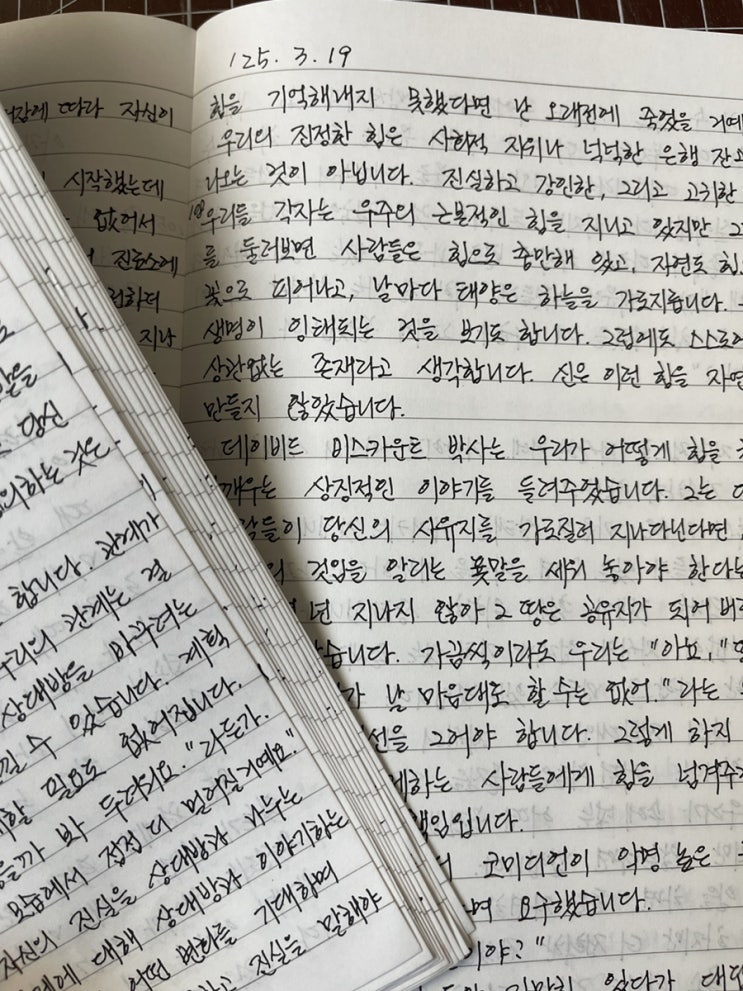 '25. 3. 19
힘을 기억해내지 못했다면 난 오래전에 죽었을 거예
우리의 진정한 힘은 사회적 지위나 넉넉한 은행 잔고
나오는 것이 아닙니다. 진실하고 강인한, 그리고 고귀한
우리들 각자는 우주의 근본적인 힘을 지니고 있지만 그
를 둘러보면 사람들은 힘으로 충만해 있고, 자연도 힘
꽃으로 피어나고, 날마다 태양은 하늘을 가로지릅니다.
생명이 잉태되는 것을 보기도 합니다. 그럼에도 스스로
상관없는 존재라고 생각합니다. 신은 이런 힘을 자연
만들지 않았습니다.
데이비드 비스카운트 박사는 우리가 어떻게 힘을
깨우는 상징적인 이야기를 들려주었습니다. 그는
람들이 당신의 사유지를 가로질러 지나다닌다면,
것임을 알리는 푯말을 세워 놓아야 한다는
년 지나지 않아 그 땅은 공유지가 되어 버
습니다. 가끔씩이라도 우리는 "아뇨,"
가 날 마음대로 할 수는 없어."라는
선을 그어야 합니다. 그렇게 하지
하는 사람들에게 힘을 넘겨주
책임입니다.
코미디언이 악명 높은
며 요구했습니다.
이야?"
있다가
따라 자신이
시작했는데
없어서
진료소에
지나
당신
의하는 것은
합니다. 관계가
우리의 관계는 결
상대방을 바꾸려는
낄 수 있습니다. 계획
할 필요도 없어집니다.
을까 봐 두려워요."라든가,
모습에서 점점 더 멀어질 거예요."
자신의 진실을 상대방과 나누는
에 대해 상대방과 이야기하는
어떤 변화를 기대하며
하고 진실을 말해야